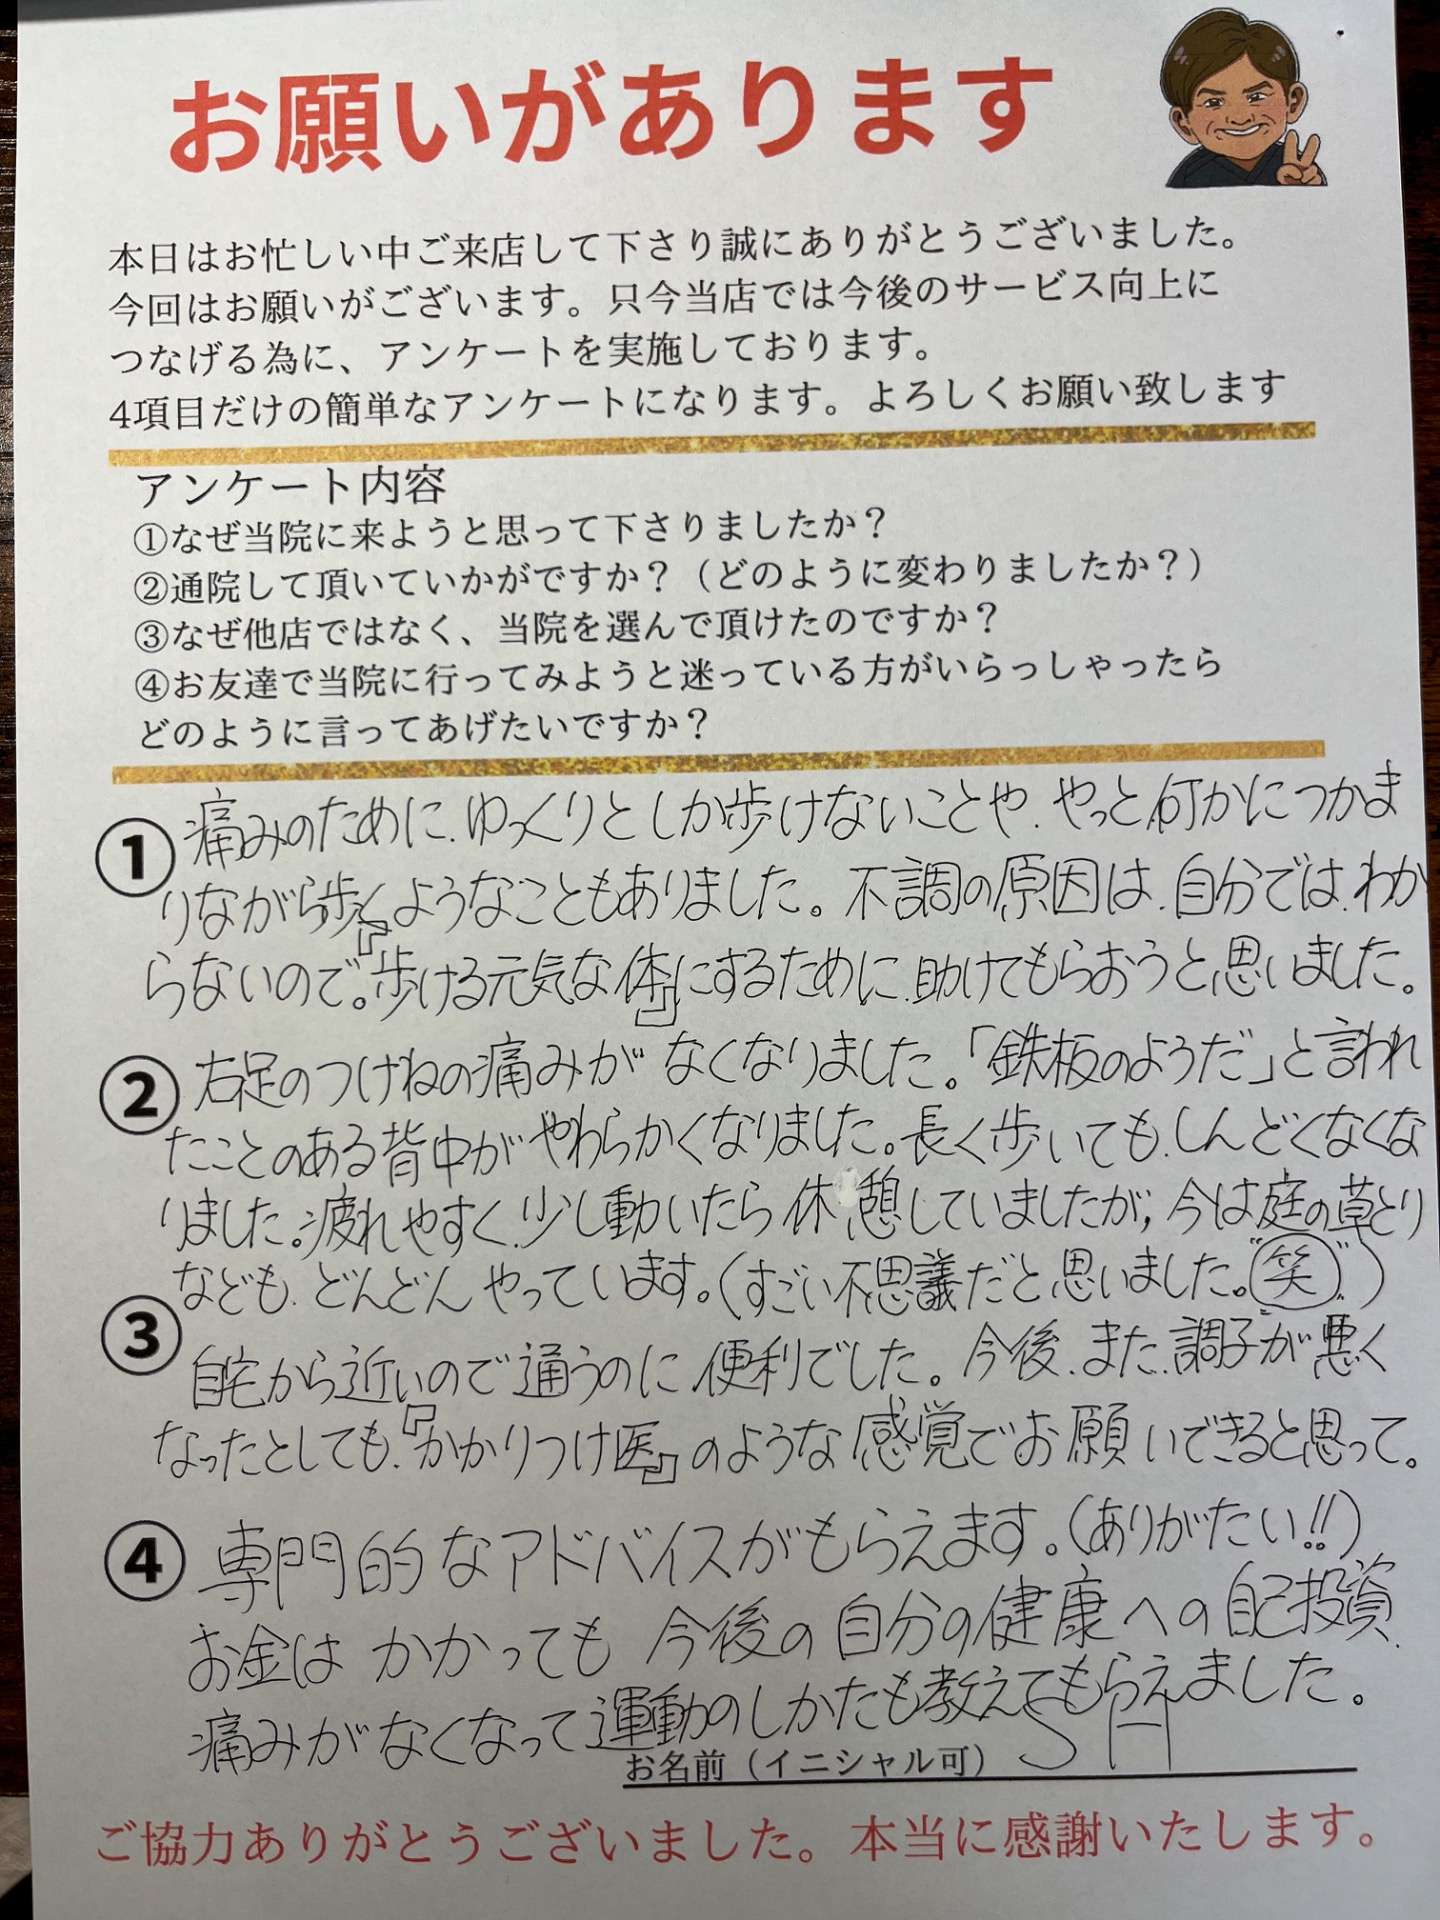 お願いがあります
本日はお忙しい中ご来店して下さり誠にありがとうございました。
今回はお願いがございます。只今当店では今後のサービス向上に
つなげる為に、アンケートを実施しております。
4項目だけの簡単なアンケートになります。よろしくお願い致します
アンケート内容
①なぜ当院に来ようと思って下さりましたか？
②通院して頂いていかがですか？（どのように変わりましたか？）
③なぜ他店ではなく、当院を選んで頂けたのですか？
④お友達で当院に行ってみようと迷っている方がいらっしゃったら
どのように言ってあげたいですか？
① 痛みのために、ゆっくりとしか歩けないことや、やっと何かにつかま
りながら歩くようなこともありました。不調の原因は、自分では、わか
らないので。『歩ける元気な体』にするために、助けてもらおうと思いました。
② 右足のつけねの痛みがなくなりました。「鉄板のようだ」と言われ
たことのある背中がやわらかくなりました。長く歩いても、しんどくなくな
りました。疲れやすく、少し動いたら休憩していましたが、今は庭の草とり
なども、どんどんやっています。（すごい不思議だと思いました。"笑"）
③ 自宅から近いので通うのに便利でした。今後、また、調子が悪く
なったとしても、『かかりつけ医』のような感覚でお願いできると思って。
④ 専門的なアドバイスがもらえます。（ありがたい!!）
お金はかかっても今後の自分の健康への自己投資、
痛みがなくなって運動のしかたも教えてもらえました。
お名前（イニシャル可） S H
ご協力ありがとうございました。本当に感謝いたします。